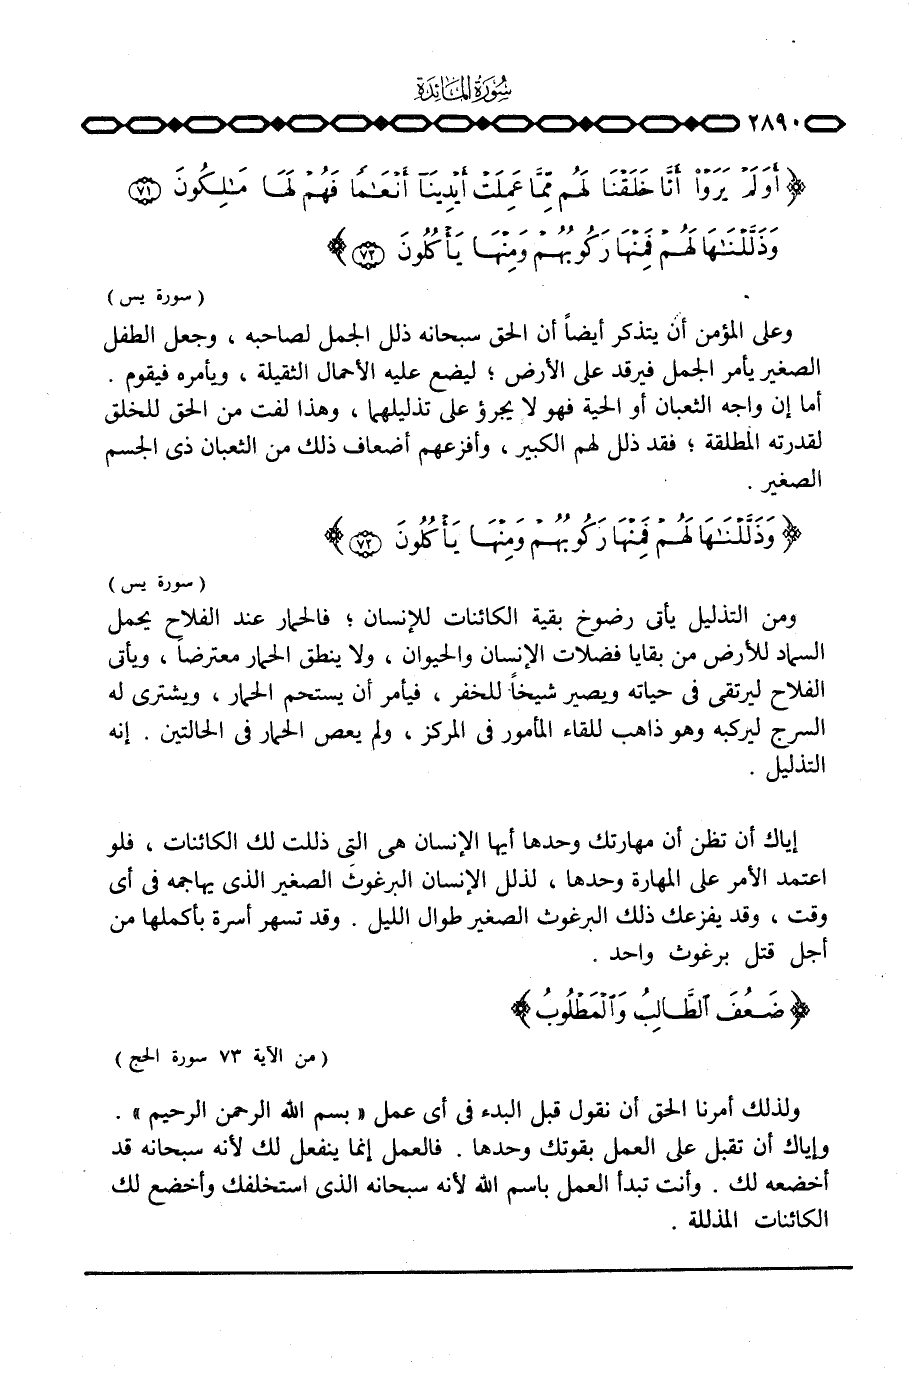 سُورَةُ المَائِدَةِ
٢٨٩٠
﴿ أَوَلَمْ يَرَوْا أَنَّا خَلَقْنَا لَهُم مِّمَّا عَمِلَتْ أَيْدِينَآ أَنْعَٰمًا فَهُمْ لَهَا مَٰلِكُونَ ۝٧١
وَذَلَّلْنَٰهَا لَهُمْ فَمِنْهَا رَكُوبُهُمْ وَمِنْهَا يَأْكُلُونَ ۝٧٢ ﴾
( سورة يس )
وعلى المؤمن أن يتذكر أيضاً أن الحق سبحانه ذلل الجمل لصاحبه ، وجعل الطفل
الصغير يأمر الجمل فيرقد على الأرض ؛ ليضع عليه الأحمال الثقيلة ، ويأمره فيقوم .
أما إن واجه الثعبان أو الحية فهو لا يجرؤ على تذليلهما ، وهذا لفت من الحق للخلق
لقدرته المطلقة ؛ فقد ذلل لهم الكبير ، وأفزعهم أضعاف ذلك من الثعبان ذى الجسم
الصغير .
﴿ وَذَلَّلْنَٰهَا لَهُمْ فَمِنْهَا رَكُوبُهُمْ وَمِنْهَا يَأْكُلُونَ ۝٧٢ ﴾
( سورة يس )
ومن التذليل يأتى رضوخ بقية الكائنات للإنسان ؛ فالحمار عند الفلاح يحمل
السماد للأرض من بقايا فضلات الإنسان والحيوان ، ولا ينطق الحمار معترضاً ، ويأتى
الفلاح ليرتقى فى حياته ويصير شيخاً للخفر ، فيأمر أن يستحم الحمار ، ويشترى له
السرج ليركبه وهو ذاهب للقاء المأمور فى المركز ، ولم يعص الحمار فى الحالتين . إنه
التذليل .
إياك أن تظن أن مهارتك وحدها أيها الإنسان هى التى ذللت لك الكائنات ، فلو
اعتمد الأمر على المهارة وحدها ، لذلل الإنسان البرغوثَ الصغير الذى يهاجمه فى أى
وقت ، وقد يفزعك ذلك البرغوث الصغير طوال الليل . وقد تسهر أسرة بأكملها من
أجل قتل برغوث واحد .
﴿ ضَعُفَ ٱلطَّالِبُ وَٱلْمَطْلُوبُ ﴾
( من الآية ٧٣ سورة الحج )
ولذلك أمرنا الحق أن نقول قبل البدء فى أى عمل « بسم الله الرحمن الرحيم » .
وإياك أن تقبل على العمل بقوتك وحدها . فالعمل إنما ينفعل لك لأنه سبحانه قد
أخضعه لك . وأنت تبدأ العمل باسم الله لأنه سبحانه الذى استخلفك وأخضع لك
الكائنات المذللة .